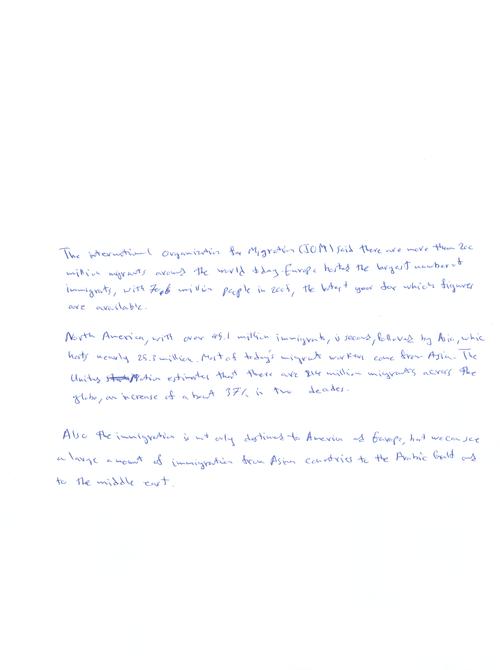 The international Organization for Migration (IOM) said there are more than 200
million migrants around the world today. Europe hosted the largest number of
immigrants, with 70.6 million people in 2005, the latest year for which figures
are available.
North America, with over 45.1 million immigrants, is second, followed by Asia, which
hosts nearly 25.3 million. Most of today's migrant workers come from Asia. The
United Nation estimates that there are 214 million migrants across the
globe, an increase of about 37% in two decades.
Also the immigration is not only destined to America and Europe, but we can see
a large amount of immigration from Asian countries to the Arabic Gulf and
to the middle east.